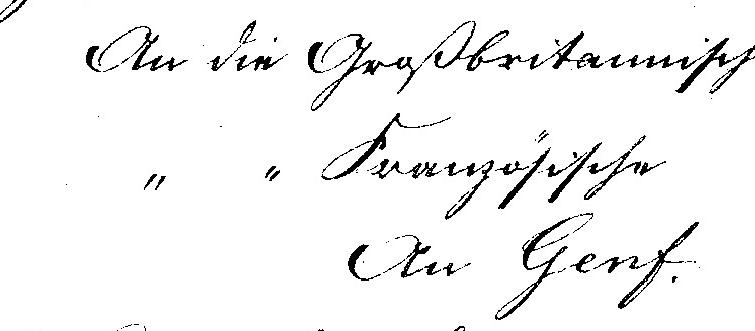 An die Großbritannisch
„ „ Französische
An Genf.